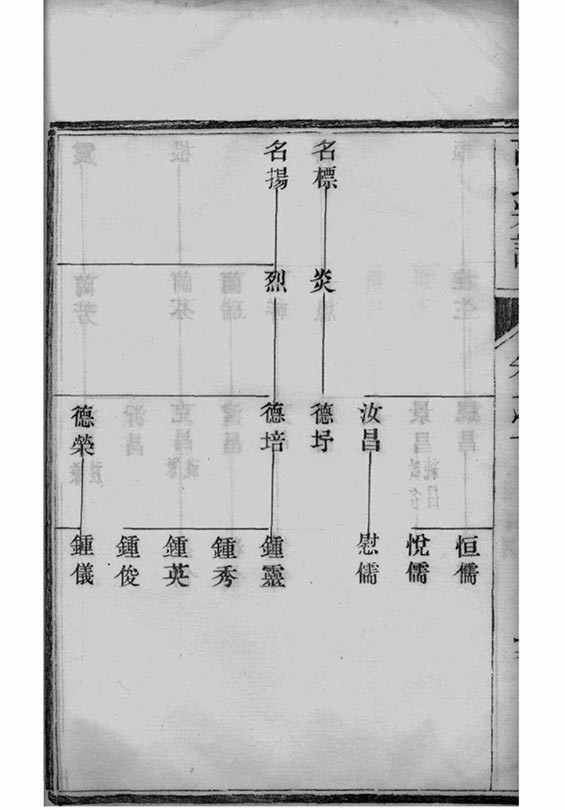 恒儒
悅儒
汝昌
慰儒
名標
炎
德圩
名揚
烈
德培
鍾靈
鍾秀
鍾英
鍾俊
德榮
鍾儀